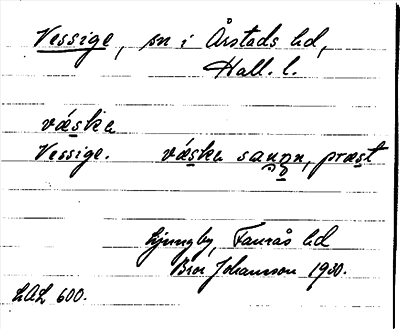 Vessige, sn i Årstads hd,
Hall. l.
vǽska
Vessige. vǽska sauṇn, præst
Ljungby, Faurås hd
Bror Johansson 1930.
LAL 600.